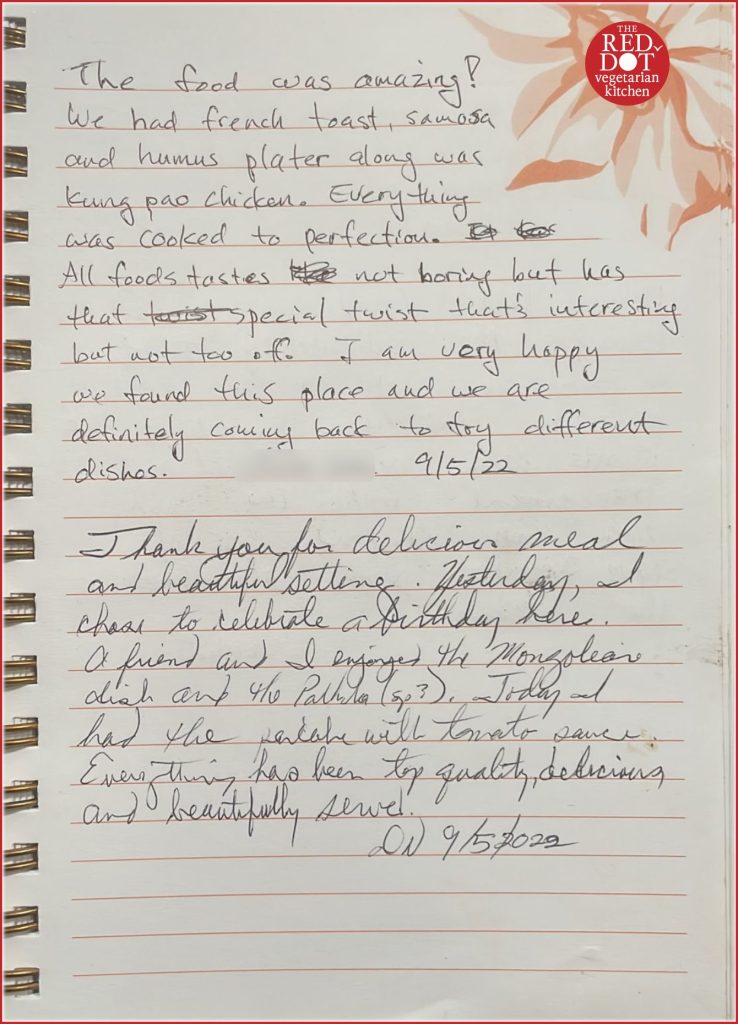 THE
RED
DOT
vegetarian
kitchen
The food was amazing!
We had french toast, samosa
and humus plater along was
kung pao chicken. Everything
was cooked to perfection.
All foods tastes not boring but has
that twist special twist that's interesting
but not too off. I am very happy
we found this place and we are
definitely coming back to try different
dishes. 9/5/22
Thank you for delicious meal
and beautiful setting. Yesterday, I
chose to celebrate a birthday here.
A friend and I enjoyed the Mongolian
dish and the (sp?). Today I
had the with tomato sauce.
Everything has been top quality, delicious
and beautifully served.
9/5/2022